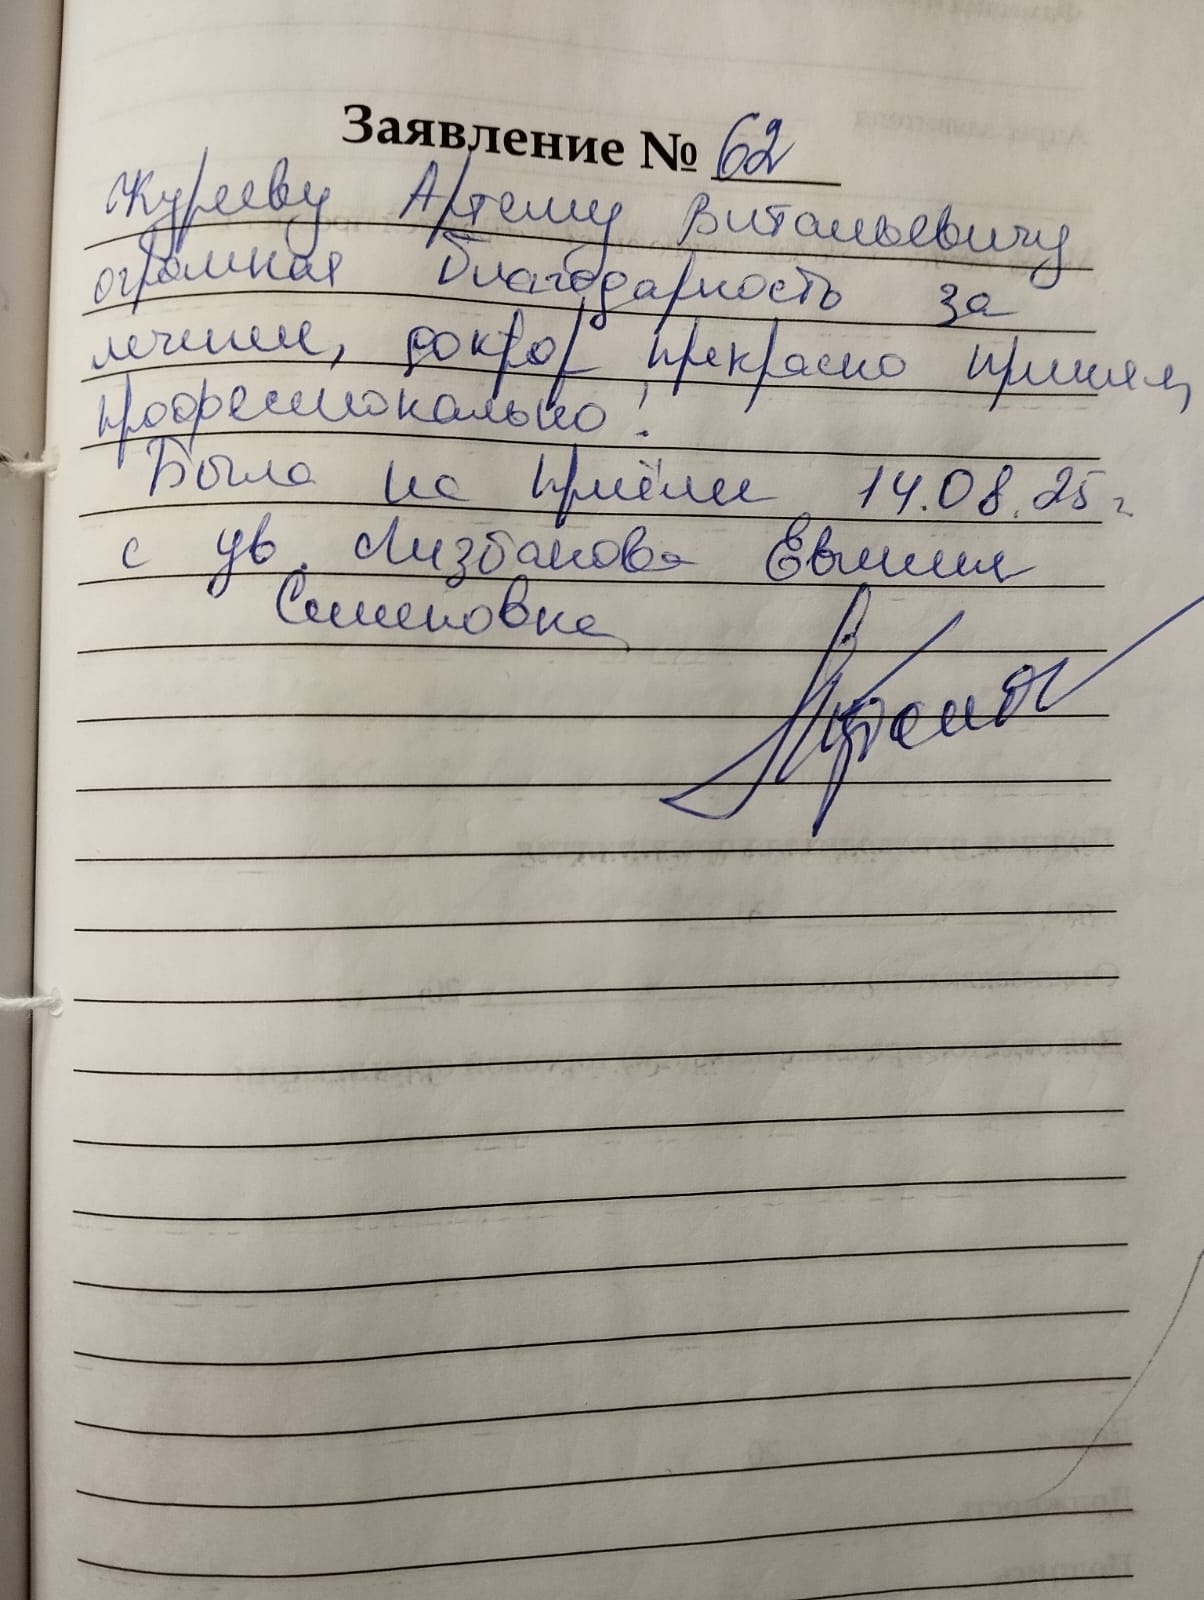 Заявление № 62
Журееву Артему Витальевичу
огромная благодарность за
лечение, доктор прекрасно принял,
профессионально!
Была на приёме 14.08.25г
с ув. Лизбанова Евгения
Семеновна